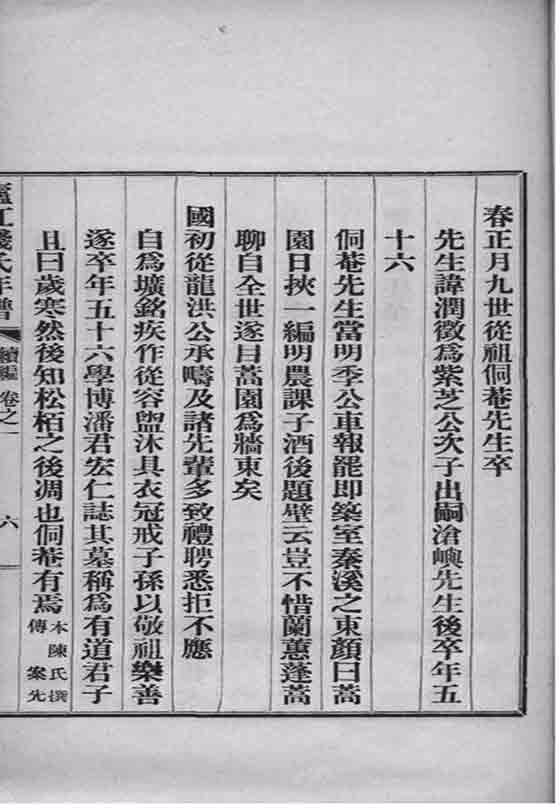 春正月九世從祖侗菴先生卒
先生諱潤徵爲紫芝公次子出嗣滄嶼先生後卒年五
十六
侗菴先生當明季公車報罷即築室秦溪之東顏曰蒿
園日挾一編明農課子酒後題壁云豈不惜蘭蕙蓬蒿
聊自全世遂目蒿園爲牆東矣
國初從龍洪公承疇及諸先輩多致禮聘悉拒不應
自爲壙銘疾作從容盥沐具衣冠戒子孫以敬祖樂善
遂卒年五十六學博潘君宏仁誌其墓稱爲有道君子
且曰歲寒然後知松栢之後凋也侗菴有焉本陳氏撰
傳 案先
廬江錢氏年譜 續編 卷之一 六